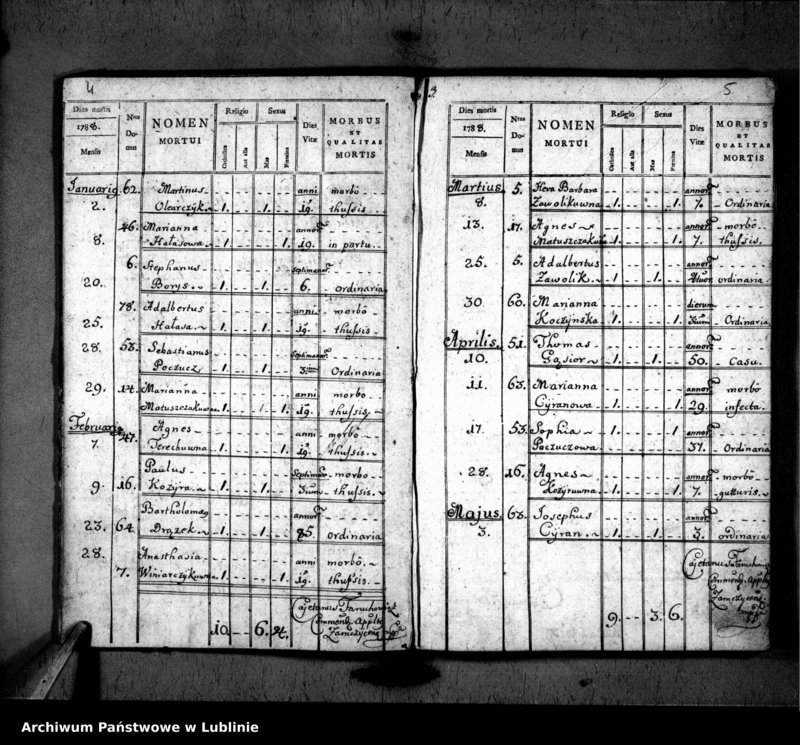 4
Dies mortis
1788.
Mensis
Nrus Domus
NOMEN
MORTUI
Religio
Catholica
Aut alia
Sexus
Mas
Femina
Dies Vitæ
MORBUS
ET
QUALITAS
MORTIS
Januarig 62. Martinus anni morbô
2. Olearczyk 1. 1. thussis
46. Marianna annor
8. Hałasowa 1. 1. 19. in partu.
6. Stephanus Septimanor
20. Borys 1. 1. 6. ordinaria
78. Adalbertus anni morbô
25. Hałasa 1. 1. thussis
28. 53. Sebastianus Septimanor
Poczucz 1. 1. Ordinaria
29. 14. Marianna anni morbô
Matuszczakuwna 1. 1. thussis.
Februarig 47. Agnes anni morbô
7. Terechuwna 1. 1. thussis.
Paulus Septimanor morbo
9. 16. Kozyra 1. 1. thussis.
Bartholomæy annor
23. 64. Drązek 1. 1. 85. ordinaria
28. Anasthasia anni morbô.
7. Winiarczykuwna 1. 1. thussis.
10. 6. 4.
Cajetanus
5
Dies mortis
1788.
Mensis
Nrus Domus
NOMEN
MORTUI
Religio
Catholica
Aut alia
Sexus
Mas
Femina
Dies Vitæ
MORBUS
ET
QUALITAS
MORTIS
Martius 5. Heva Barbara annor
8. Zawolikuwna 1. 1. 7. Ordinaria
13. 17. Agnes annor morbô
Matuszczakuwna 1. 1. 7. thussis.
25. 5. Adalbertus annor
Zawolik 1. 1. ordinaria
30. 60. Marianna dierum
Koczyńska 1. 1. Ordinaria
Aprilis. 51. Thomas annor
10. Gąsior 1. 1. 50. Casu.
11. 63. Marianna annor morbô
Cyranowa 1. 1. 29. infecta.
17. 53. Sophia annor
Poczuczowa 1. 1. 37. Ordinaria
28. 16. Agnes annor morbô
Kozyruwna 1. 1. 7. gutturis.
Majus 63. Josephus annor
3. Cyran 1. 1. 3. ordinaria
9. 3. 6.
Cajetanus
Archiwum Państwowe w Lublinie